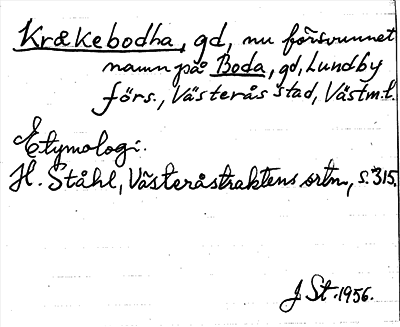 Krækebodha, gd, nu försvunnet
namn på Boda, gd, Lundby
förs., Västerås stad, Västml.
Etymologi:
H. Ståhl, Västeråstraktens ortn., s. 315.
J St. 1956.